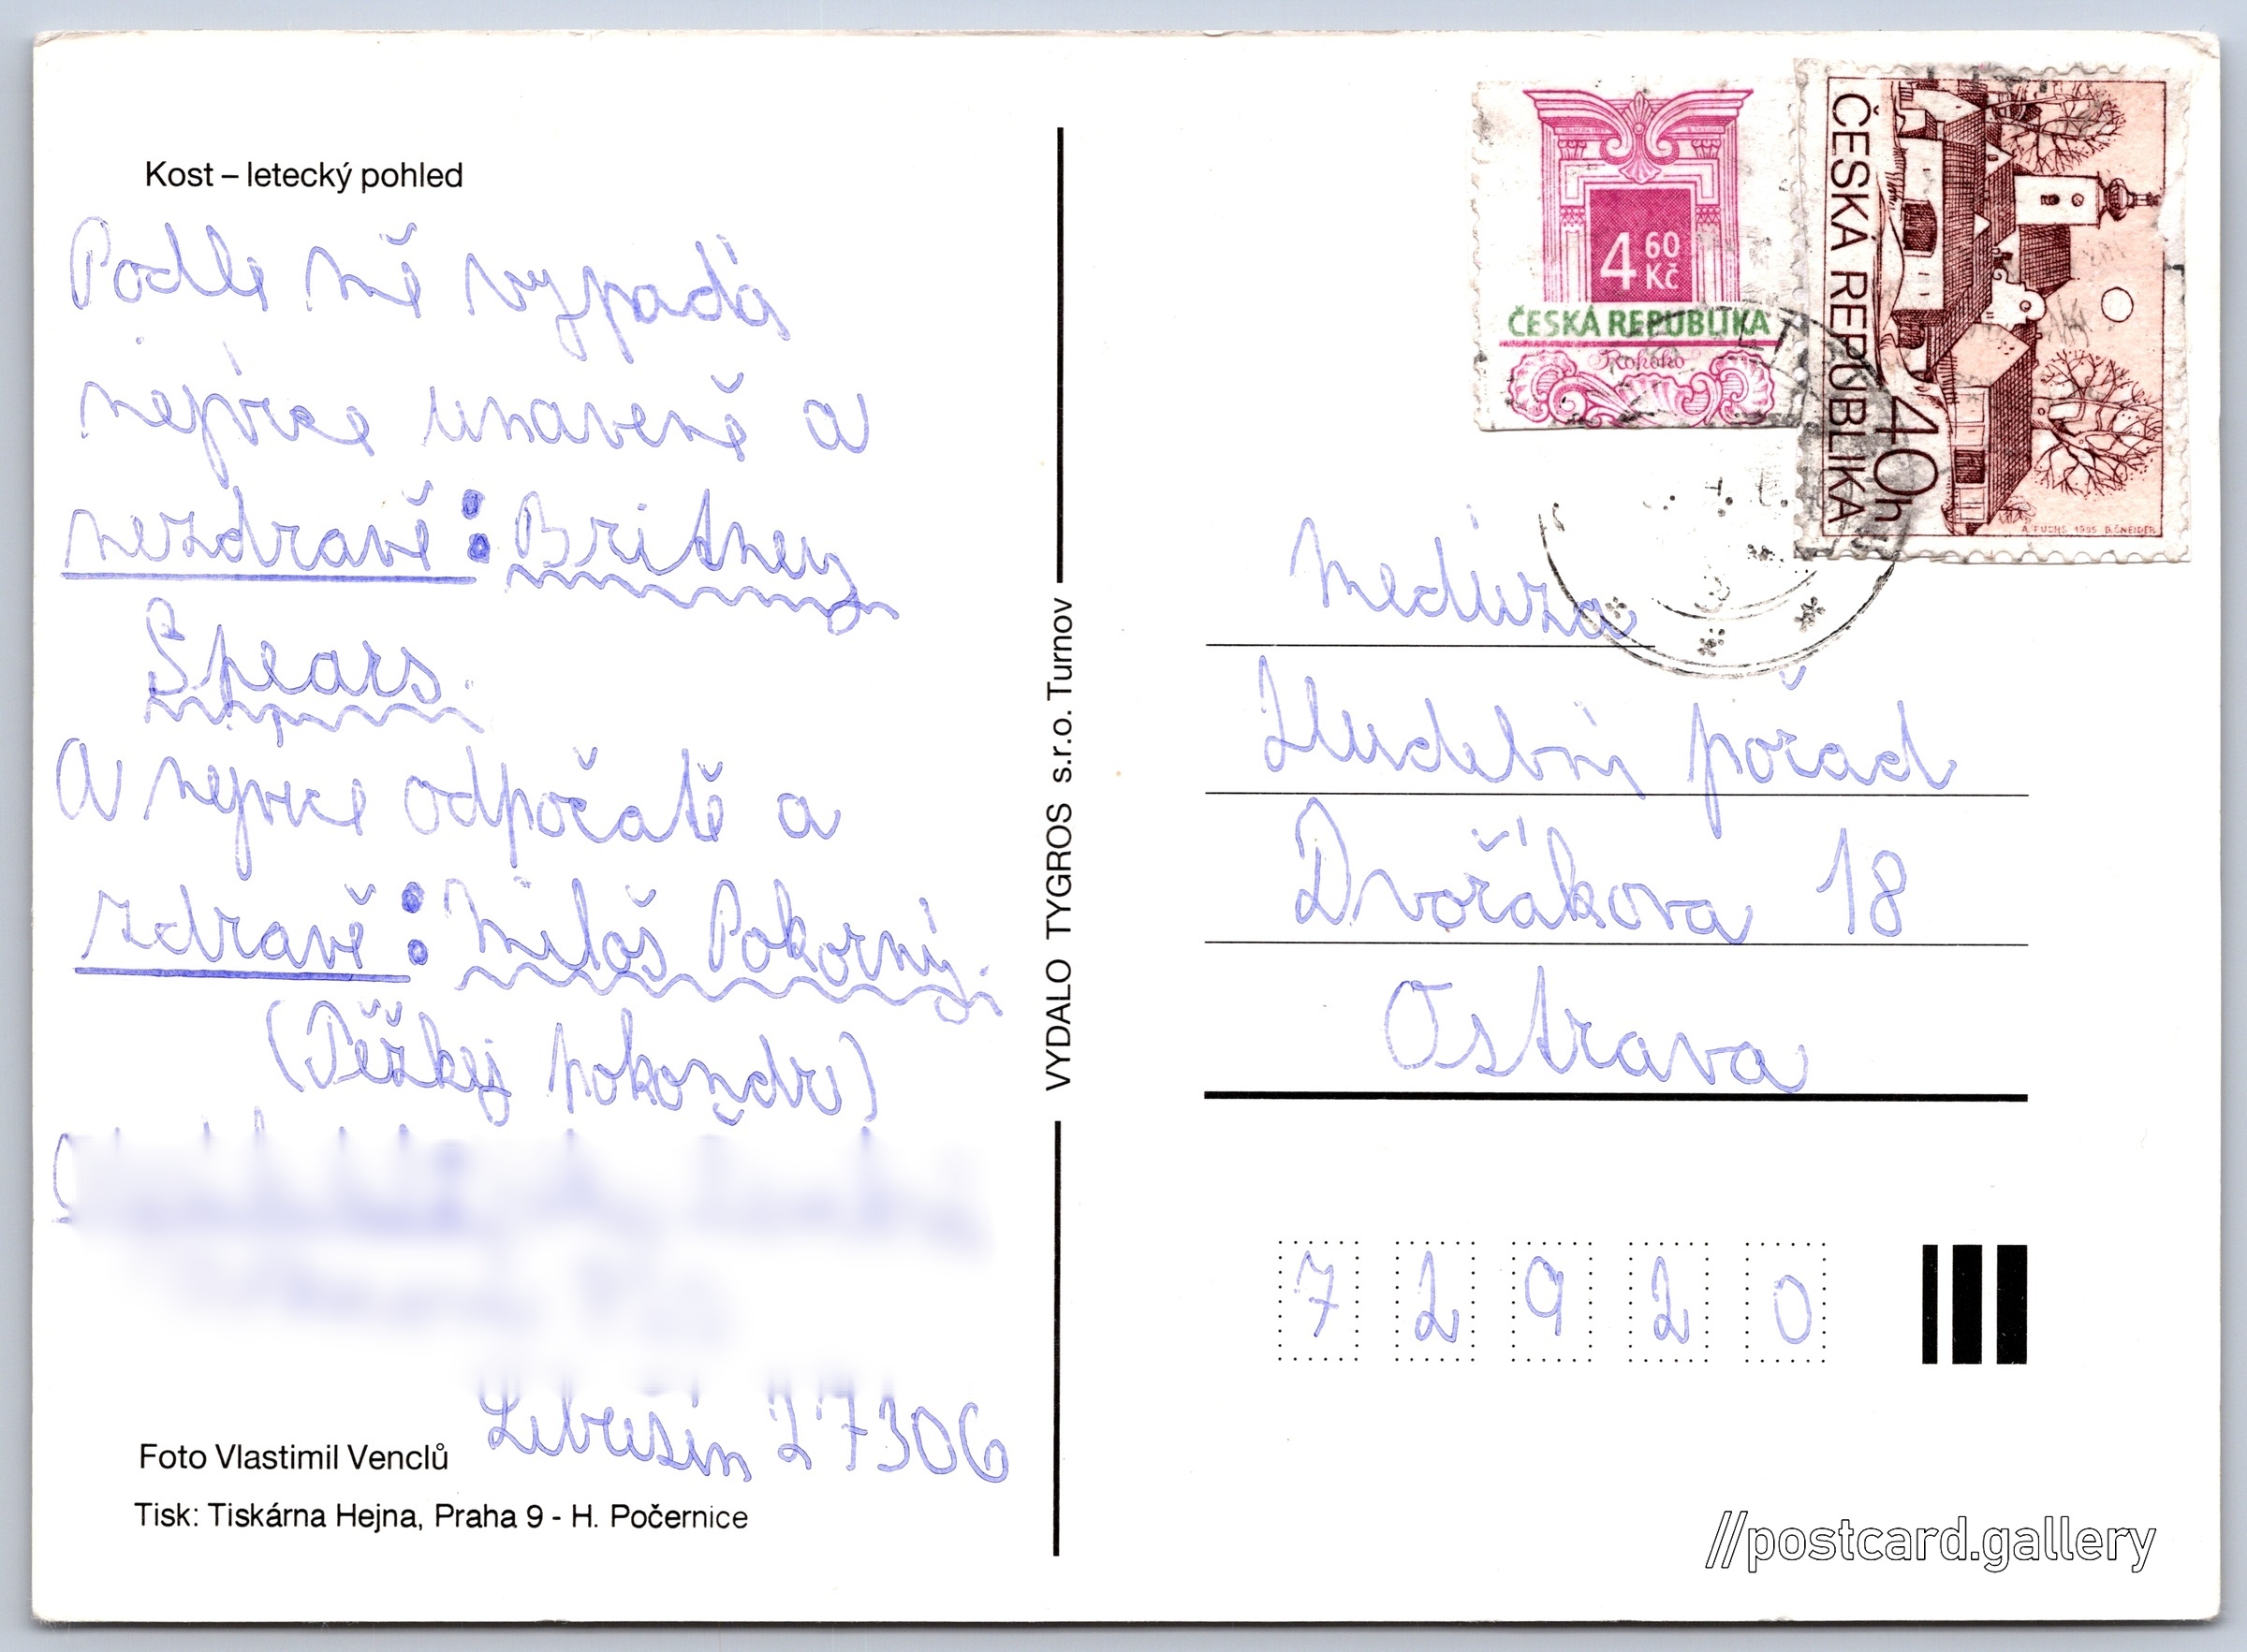 Kost – letecký pohled
Podle mě vypadá
nejvíce unaveně a
nezdravě: Britney
Spears.
A nejvíce odpočatě a
zdravě: Miloš Pokorný.
(Těžkej pokondr)
Libušín 27306
Foto Vlastimil Venclů
Tisk: Tiskárna Hejna, Praha 9 - H. Počernice
VYDALO TYGROS s.r.o. Turnov
4 60 Kč
ČESKÁ REPUBLIKA
Rokoko
ČESKÁ REPUBLIKA
40h
A. FUCHS 1995 B. ŠNEIDER
Medúza
Hudební pořad
Dvořákova 18
Ostrava
7 2 9 2 0
//postcard.gallery